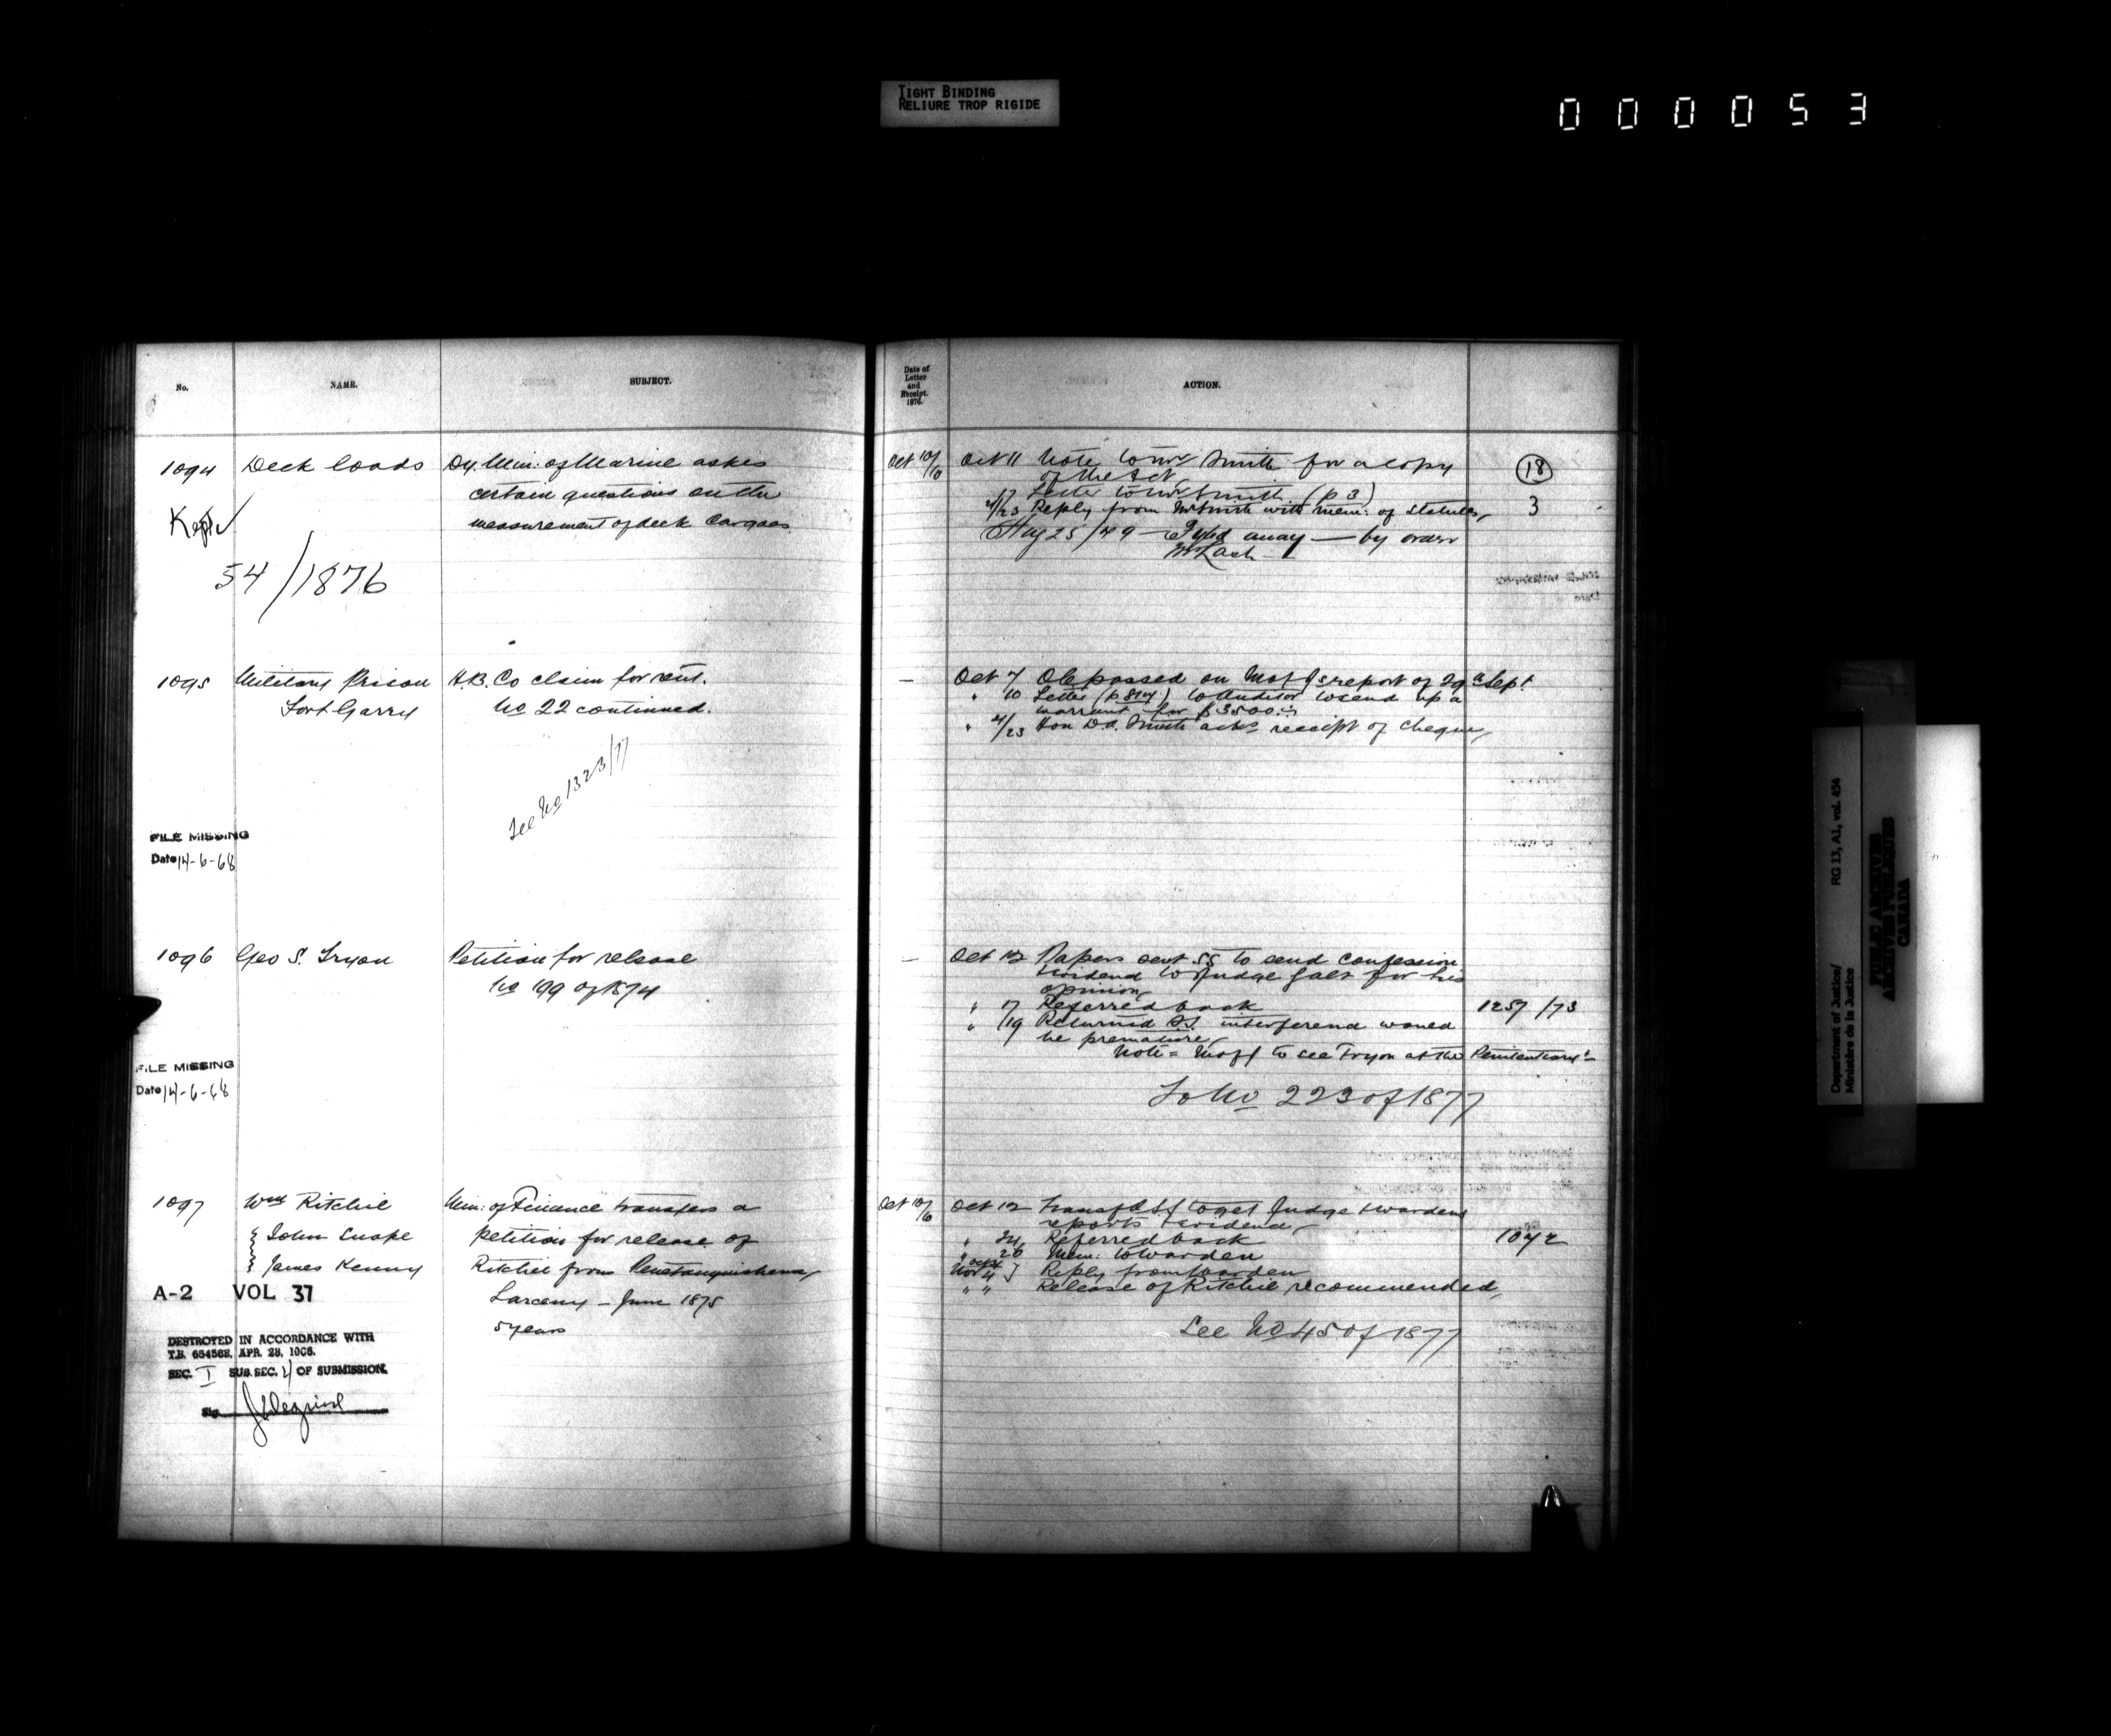 TIGHT BINDING
RELIURE TROP RIGIDE
000053
No.
NAME.
SUBJECT.
1094 Deck loads Dy. Min: of Marine askes
certain questions on the
measurement of deck Cargoes.
Kept
54/1876
1095 Military Prison H.B. Co claim for rent.
Fort Garry No 22 continued.
See No 1323/77
FILE MISSING
Date 14-6-68
1096 Geo S. Tryon Petition for release
No 199 of 1874
FILE MISSING
Date 14-6-68
1097 Wm Ritchie Min: of Finance transfers a
John petition for release of
James Kenny Ritchie from Penetanguishene
A-2 VOL 37
Larceny – June 1875
5 years
DESTROYED IN ACCORDANCE WITH
T.B. 654568, APR. 28, 1966.
SEC. I SUB. SEC. OF SUBMISSION.
Sig.
Date of
Letter
and
Receipt.
1876.
ACTION.
Oct 10/10 Oct 11 Note to Mr Smith for a copy
of the Act
18
17 Letter to Mr Smith (p 3)
/23 Reply from Mr Smith with mem: of Statutes, 3
Aug 25/79 – Fyled away — by order
Mr Lash
— Oct 7 OC passed on M of J's report of 29th Sept
" 10 Letter (p 814) to Auditor to send up a
warrant for $3500
" /23 Hon D.A. Smith acks receipt of cheque,
— Oct 12 Papers sent SS to send confession
evidence to Judge Galt for his
opinion
" 17 Referred back 1257/73
" /19 Returned S.S. interference would
be premature
Note = M of J to see Tryon at the Penitentiary
To No 223 of 1877
Oct 10/10 Oct 12 Transf SS to get Judge & Wardens
reports & evidence
" 24 Referred back 1042
" 26 Mem: to Warden
Nov 4 Reply from Warden
" " Release of Ritchie recommended,
See No 45 of 1877
Department of Justice/ RG 13, A1, vol. 454
Ministère de la Justice
PUBLIC ARCHIVES
ARCHIVES PUBLIQUES
CANADA